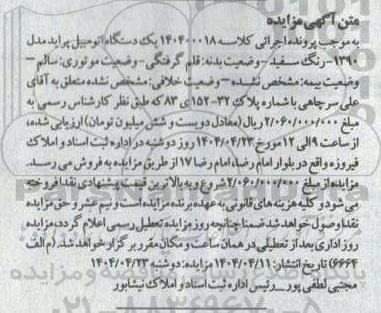 متن آگهی مزایده
به موجب پرونده اجرائی کلاسه ۱۴۰۴۰۰۰۱۸ یک دستگاه اتومبیل پراید مدل
۱۳۹۰-رنگ سفید-وضعیت بدنه: قلم گرفتگی-وضعیت موتوری: سالم-
وضعیت بیمه: مشخص نشده-وضعیت خلافی: مشخص نشده متعلق به آقای
علی سرچاهی با شماره پلاک ۳۲-۱۵۲ی۸۳ که طبق نظر کارشناس رسمی به
مبلغ ۲/۰۶۰/۰۰۰/۰۰۰ ریال (معادل دویست و شش میلیون تومان) ارزیابی شده،
از ساعت ۹ الی ۱۲ مورخ ۱۴۰۴/۰۴/۲۳ روز دوشنبه در اداره ثبت اسناد و املاک
فیروزه واقع در بلوار امام رضا، امام رضا ۱۷ از طریق مزایده به فروش می رسد.
مزایده از مبلغ ۲/۰۶۰/۰۰۰/۰۰۰ شروع و به بالاترین قیمت پیشنهادی نقدا فروخته
می شود و کلیه هزینه های قانونی به عهده برنده مزایده است و نیم عشر و حق مزایده
نقدا وصول خواهد شد ضمنا چنانچه روز مزایده تعطیل رسمی اعلام گردد، مزایده
روز اداری بعد از تعطیلی در همان ساعت و مکان مقرر برگزار خواهد شد. (م الف
۶۶۶۴) تاریخ انتشار: ۱۴۰۴/۰۴/۱۱ مزایده: دوشنبه ۱۴۰۴/۰۴/۲۳
مجتبی لطفی پور_رئیس اداره ثبت اسناد و املاک نیشابور
۰۲۱-۸۸۳۴۹۶۷۰-۵